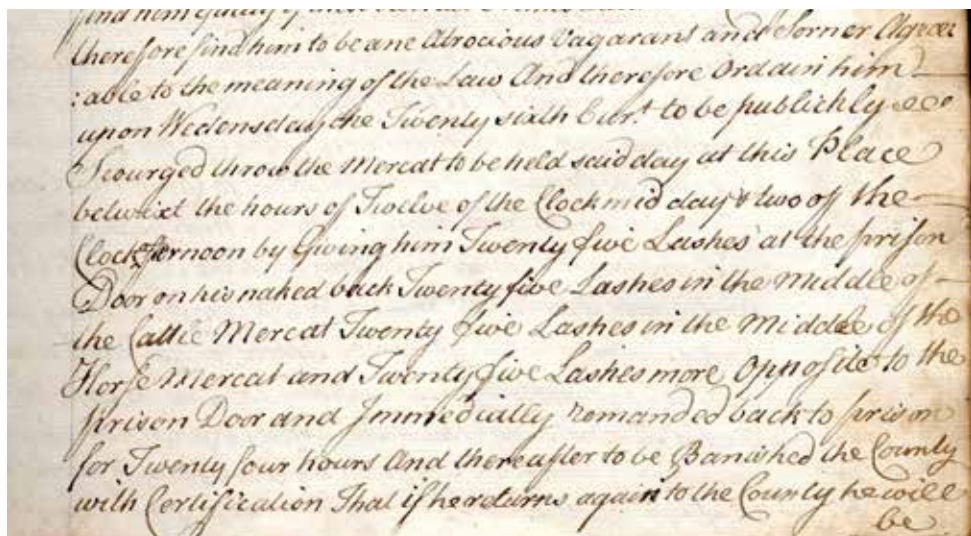 find him Guilty of
therefore find him to be ane Atrocious Vagarant and Sorner Agree
:able to the meaning of the Law And therefore Ordain him
upon Wedensday the Twenty sixth Cur.t to be publickly
Scourged throw the Mercat to be held said day at this Place
betwixt the hours of Twelve of the Clock mid day & two of the
Clock afternoon by Giving him Twenty five Lashes at the prison
Door on his naked back Twenty five Lashes in the Middle of
the Cattle Mercat Twenty five Lashes in the Middle of the
Horse Mercat and Twenty five Lashes more Opposite to the
prison Door and Immedially remanded back to prison
for Twenty four hours And thereafter to be Banished the County
with Certification That if he returns again to the County he will
be